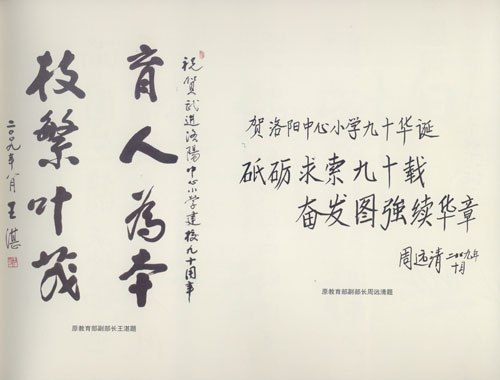 祝贺武进洛陽中心小学建校九十周年
育人為本
枝繁叶茂
二〇〇九年八月 王湛
原教育部副部长王湛题
贺洛阳中心小学九十华诞
砥砺求索九十载
奋发图強续华章
周远清 二〇〇九年十月
原教育部副部长周远清题